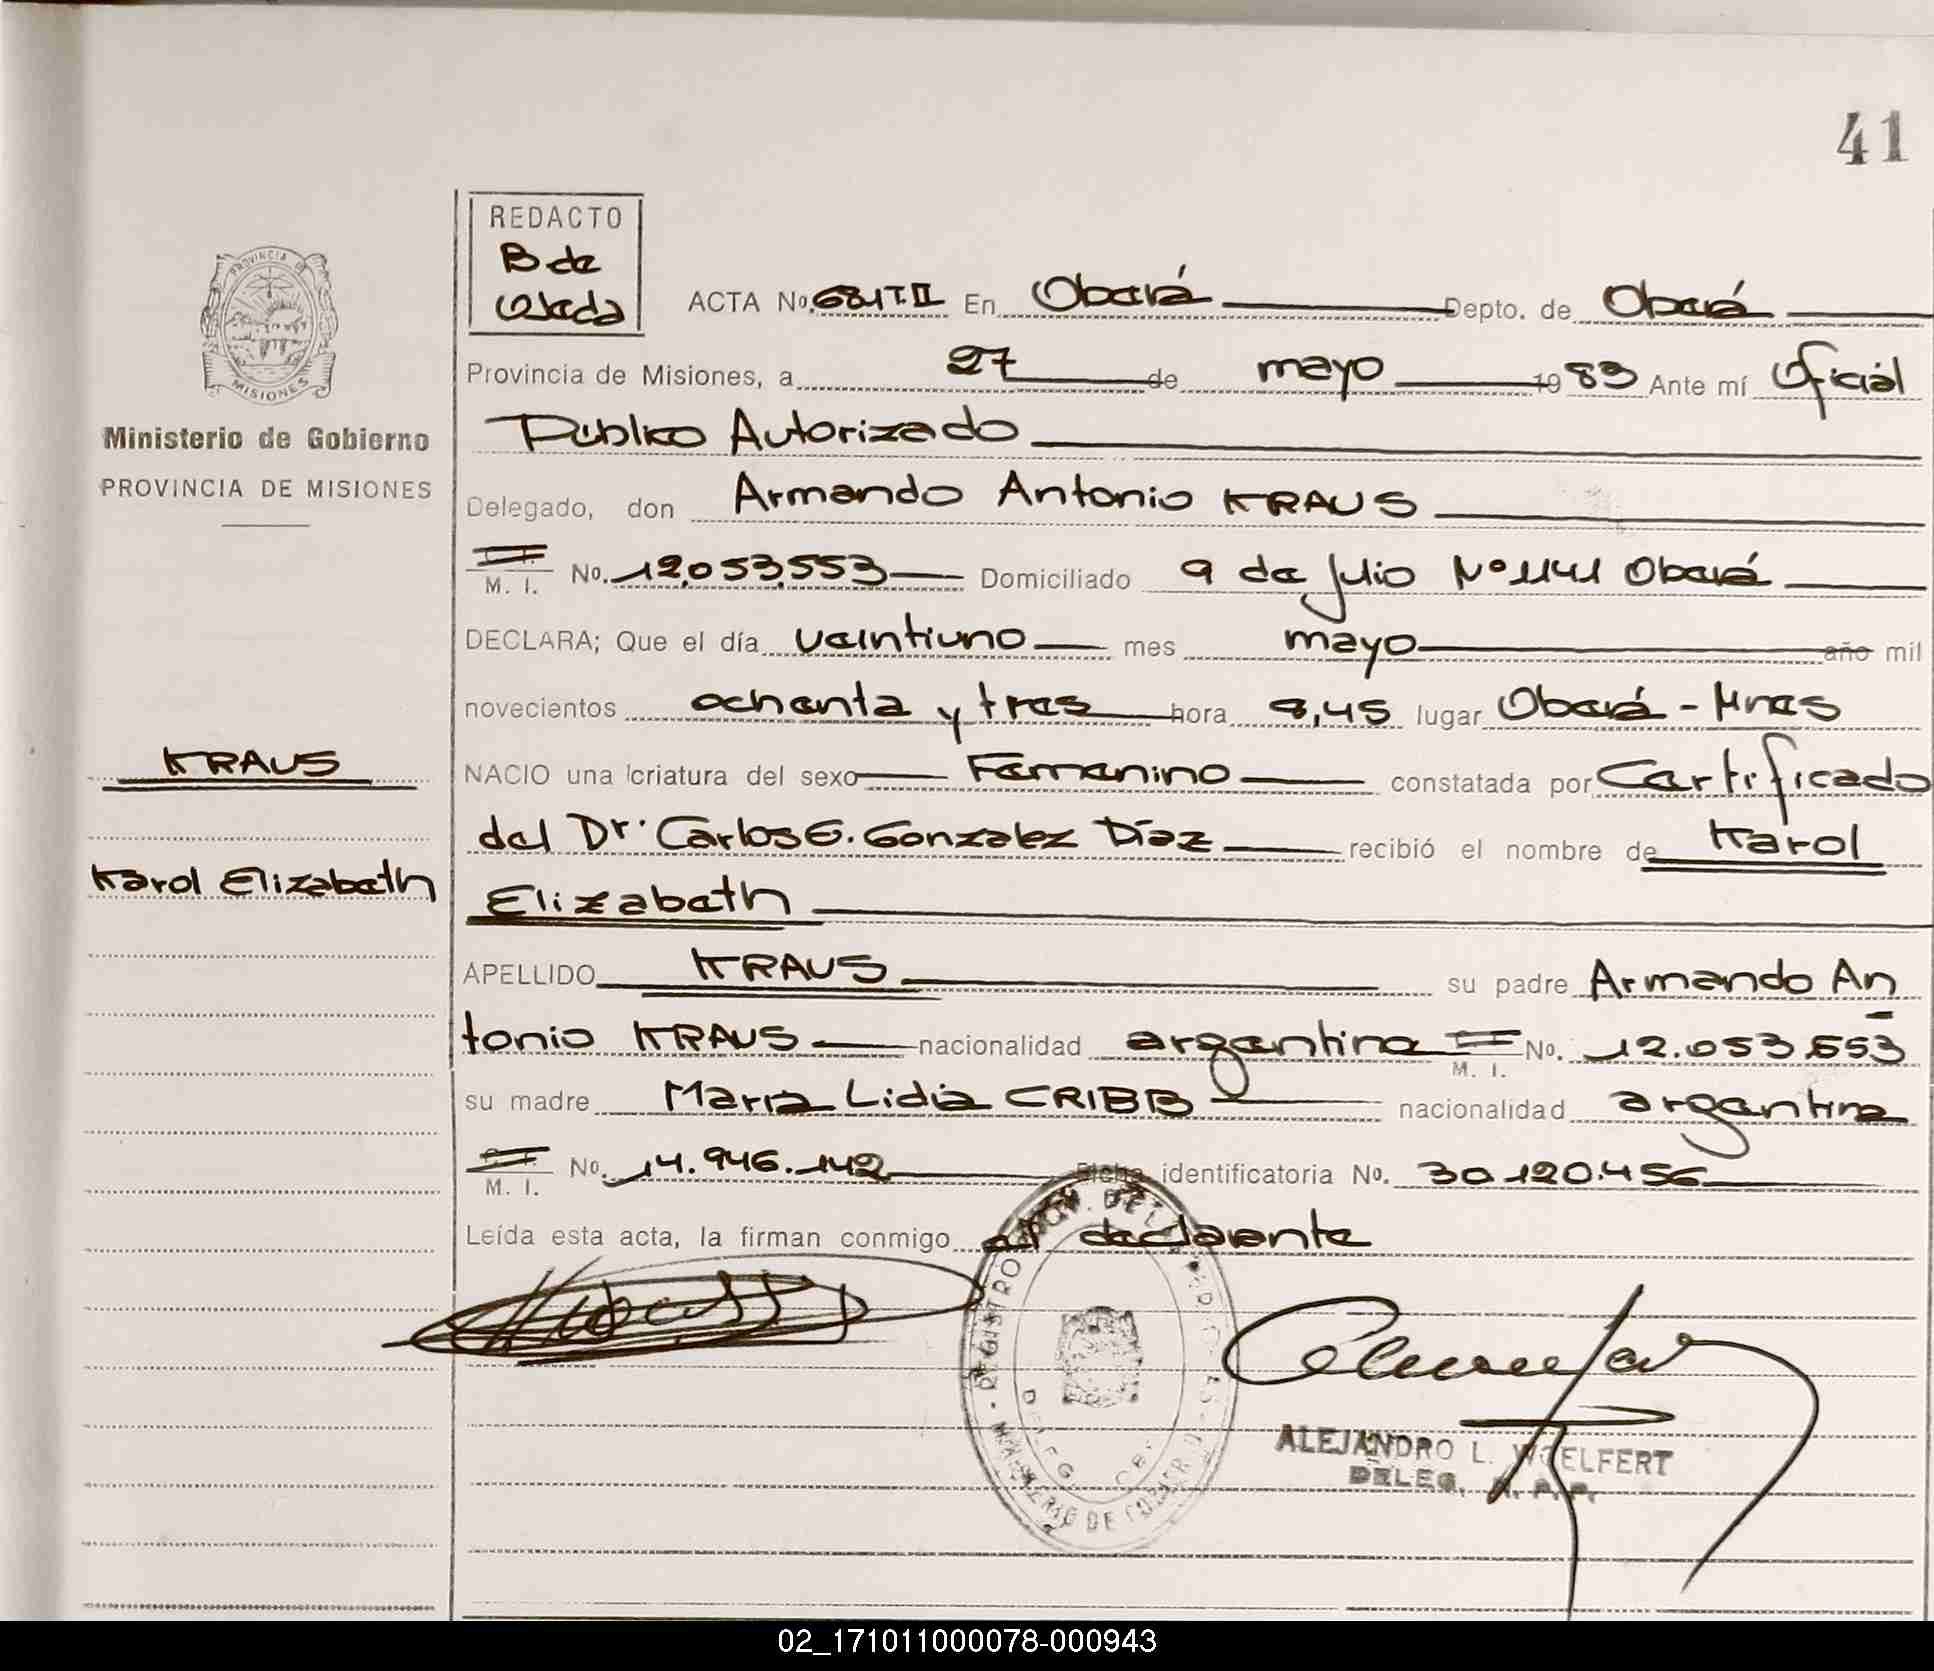 41
REDACTO
B de
Ojeda
ACTA No. 681 T. II En Oberá Depto. de Oberá
Provincia de Misiones, a 27 de mayo 1983 Ante mí Oficial
Público Autorizado
PROVINCIA DE
MISIONES
Ministerio de Gobierno
PROVINCIA DE MISIONES
Delegado, don Armando Antonio KRAUS
M. I. No. 12.053.553 Domiciliado 9 de Julio Nº 1141 Oberá
DECLARA; Que el día veintiuno mes mayo año mil
novecientos ochenta y tres hora 8,45 lugar Oberá - Mnes
KRAUS
NACIO una criatura del sexo Femenino constatada por Certificado
del Dr. Carlos E. Gonzalez Díaz recibió el nombre de Karol
Karol Elizabeth
Elizabeth
APELLIDO KRAUS su padre Armando An
tonio KRAUS nacionalidad argentina M. I. No. 12.053.553
su madre María Lidia CRIBB nacionalidad argentina
M. I. No. 14.946.142 Ficha identificatoria No. 30.120.456
Leída esta acta, la firman conmigo el declarante
REGISTRO DE LA
MINISTERIO DE GOBIERNO
ALEJANDRO L. WOELFERT
DELEG. R. P. P.
02_171011000078-000943